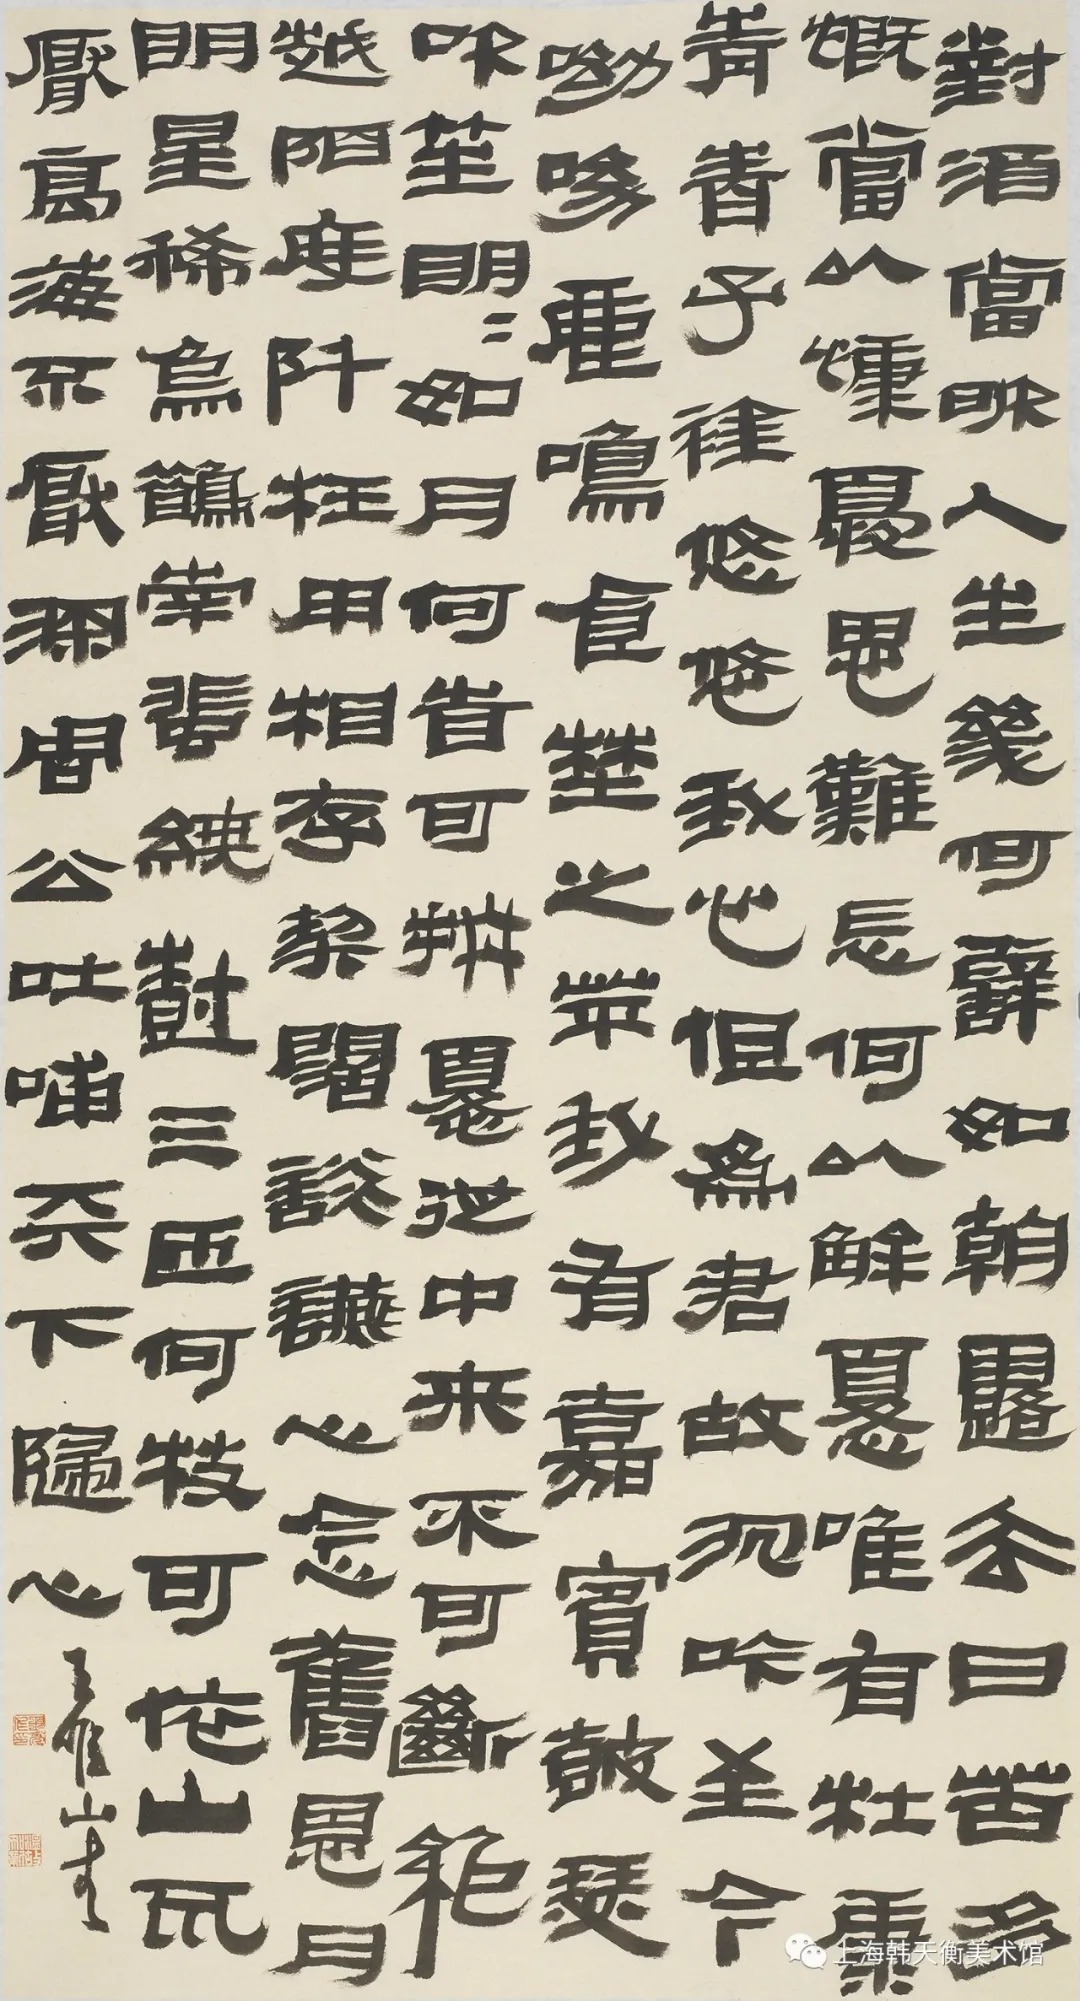 對酒當歌人生幾何譬如朝露去日苦多
慨當以慷憂思難忘何以解憂唯有杜康
青青子衿悠悠我心但為君故沈吟至今
呦呦鹿鳴食野之苹我有嘉賓鼓瑟
吹笙明〻如月何時可掇憂從中來不可斷絕
越陌度阡枉用相存契闊談讌心念舊恩月
明星稀烏鵲南飛繞樹三匝何枝可依山不
厭高海不厭深周公吐哺天下歸心
上海韩天衡美术馆